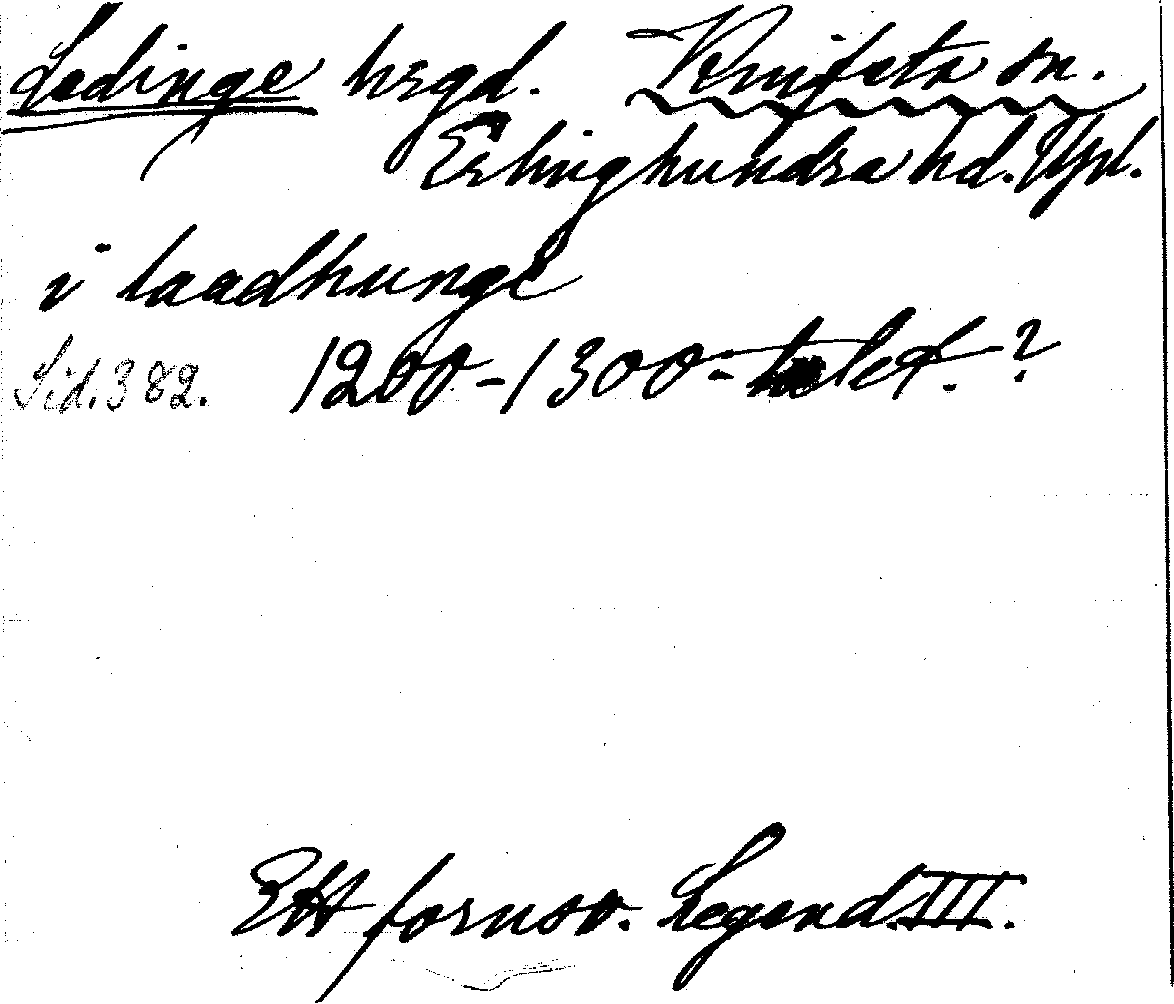 Ledinge hsgd. Knifsta sn.
Erlinghundra hd. Upl.
i laadhunge
Sid. 382. 1200-1300-talet.?
Ett fornsv. Legend. III.